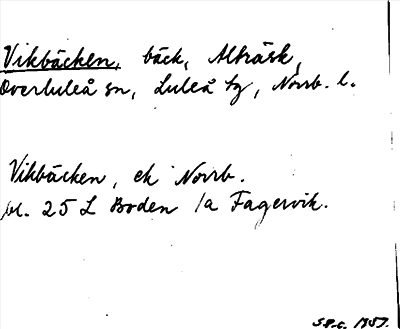 Vikbäcken, bäck, Alträsk,
Överluleå sn, Luleå tg, Norrb. l.
Vikbäcken, ek Norrb.
bl. 25 L Boden /a Fagervik.
1957.